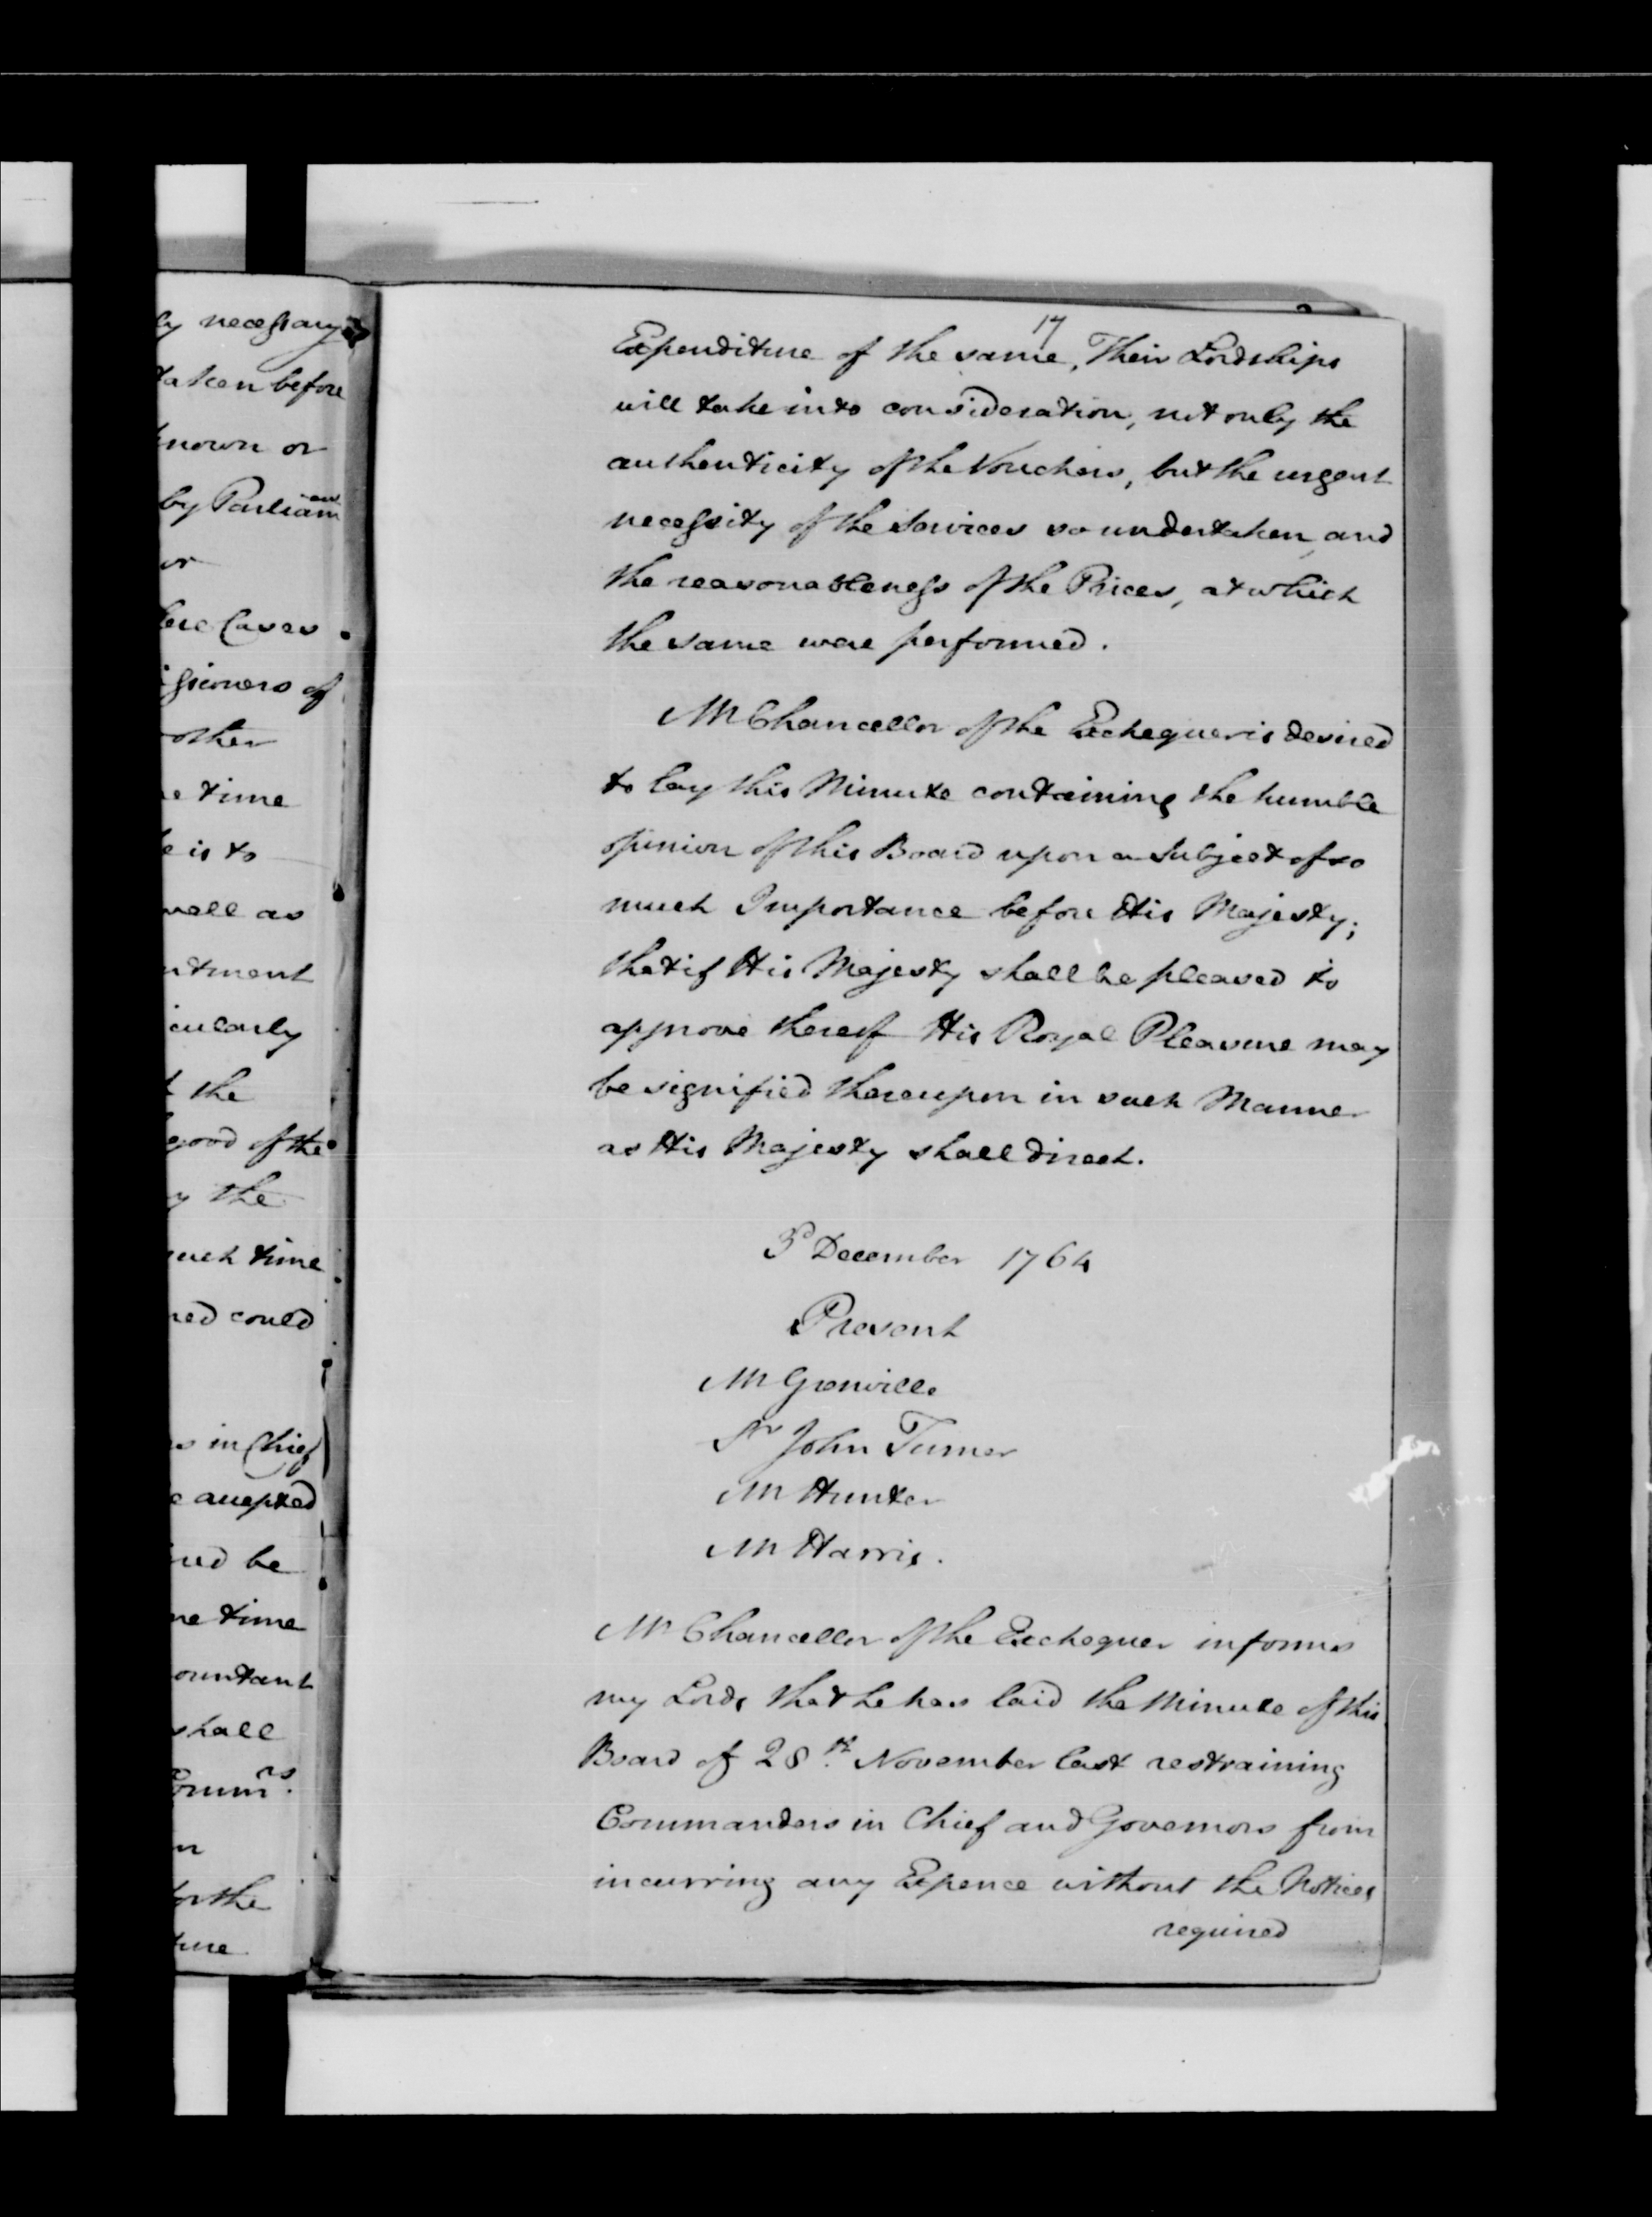 ly necessary
taken before
known or
by Parliam
or
here Cases
issioners of
other
e time
e is to
well as
ntment
icularly
t the
good of the
y the
such time
ned could
s in Chief
e accepted
ned be
me time
ountant
shall
Comm.rs
n
for the
ture
17
Expenditure of the same, Their Lordships
will take into consideration, not only the
authenticity of the Vouchers, but the urgent
necessity of the Services so undertaken, and
the reasonableness of the Prices, at which
the same were performed.
Mr Chancellor of the Exchequer is desired
to lay this Minute containing the humble
opinion of this Board upon a Subject of so
much Importance before His Majesty;
that if His Majesty shall be pleased to
approve thereof His Royal Pleasure may
be signified thereupon in such Manner
as His Majesty shall direct.
3d December 1764
Present
Mr Grenville
Sr John Turner
Mr Hunter
Mr Harris.
Mr Chancellor of the Exchequer informs
my Lords that he has laid the Minute of this
Board of 28.th November last restraining
Commanders in Chief and Governors from
incurring any Expence without the Notices
required